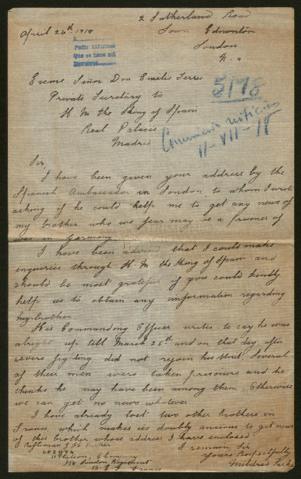 2 Sutherland Road
April 26th 1918 Town Edmonton
London
N. 9
5178
Excmo Señor Don Emilio Torres
Private Secretary to
H M the King of Spain
Real Palacio
Madrid
Comunicar noticias
11-VII-18
Sir,
I have been given your address by the
Spanish Ambassador in London to whom I wrote
asking if he could help me to get any news of
my brother who we fear may be a prisoner of
war in Germany.
I have been advised that I could make
inquiries through H M the King of Spain and
should be most grateful if you could kindly
help us to obtain any information regarding
my brother.
His Commanding Officer writes to say he was
alright up till March 25th and on that day after
severe fighting did not rejoin his unit. Several
of their men were taken prisoners and he
thinks he may have been among them. Otherwise
we can get no news whatever.
I have already lost two other brothers in
France which makes us doubly anxious to get news
of this brother whose address I have enclosed
I remain Sir
Yours Respectfully
Mildred
Rifleman
London Regiment
France